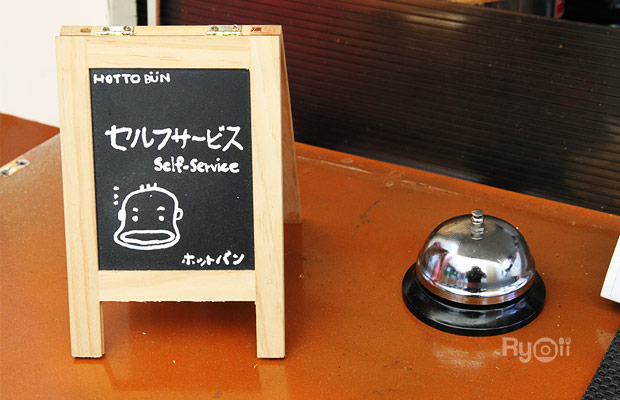 HOTTO BUN
セルフサービス
Self-Service
ホットパン
Ryoii